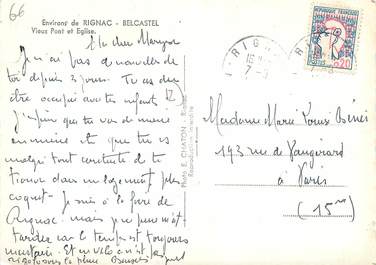 66
Environs de RIGNAC - BELCASTEL
Vieux Pont et Eglise.
Ma chère
Je n'ai pas de nouvelles de
toi depuis 3 jours. Tu as dû
être occupée avec tes enfants
J'espère que tu vas de mieux
en mieux et que tu es
malgré tout contente de te
trouver dans un logement plus
coquet - Je suis à la foire de
Rignac, mais je ne peux m'att-
arder car le temps est toujours
incertain. Et en vélo c'est
sous la pluie Baisers
Photo E. CHATON
Reproduction interdite
RIGNAC
RÉPUBLIQUE FRANÇAISE
0,20
Madame Marie Louise
193 rue de Vaugirard
à Paris
(15me)